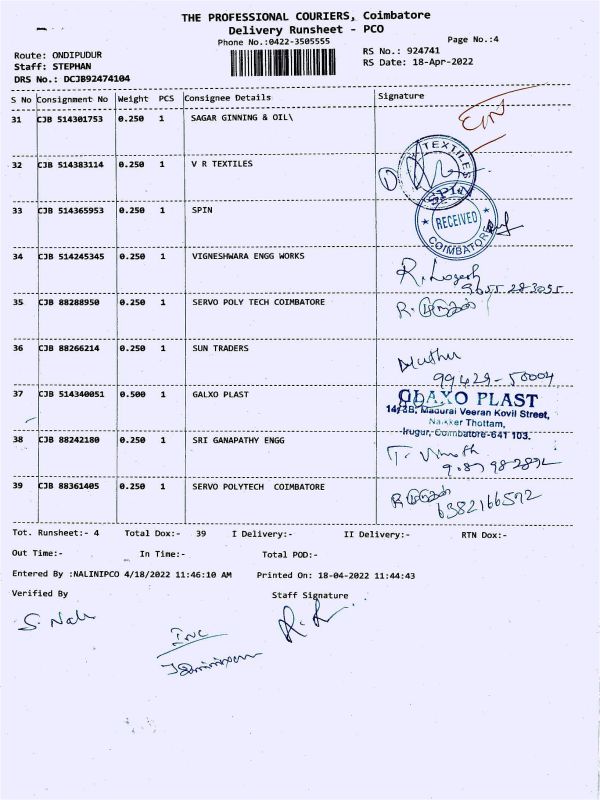 THE PROFESSIONAL COURIERS, Coimbatore
Delivery Runsheet - PCO
Phone No.:0422-3505555
Page No.:4
Route: ONDIPUDUR
RS No.: 924741
Staff: STEPHAN
RS Date: 18-Apr-2022
DRS No.: DCJB92474104
S No Consignment No Weight PCS Consignee Details Signature
31 CJB 514301753 0.250 1 SAGAR GINNING & OIL\
32 CJB 514383114 0.250 1 V R TEXTILES
TEXTILES
33 CJB 514365953 0.250 1 SPIN
SPIN
RECEIVED
COIMBATORE
34 CJB 514245345 0.250 1 VIGNESHWARA ENGG WORKS
R. Logesh
9655 283055
35 CJB 88288950 0.250 1 SERVO POLY TECH COIMBATORE
36 CJB 88266214 0.250 1 SUN TRADERS
Muthu
99429-50004
37 CJB 514340051 0.500 1 GALXO PLAST
GLAXO PLAST
Madurai Veeran Kovil Street,
Naikker Thottam,
Irugur, Coimbatore-641 103.
38 CJB 88242180 0.250 1 SRI GANAPATHY ENGG
39 CJB 88361405 0.250 1 SERVO POLYTECH COIMBATORE
6382166572
Tot. Runsheet:- 4 Total Dox:- 39 I Delivery:- II Delivery:- RTN Dox:-
Out Time:- In Time:- Total POD:-
Entered By :NALINIPCO 4/18/2022 11:46:10 AM Printed On: 18-04-2022 11:44:43
Verified By Staff Signature